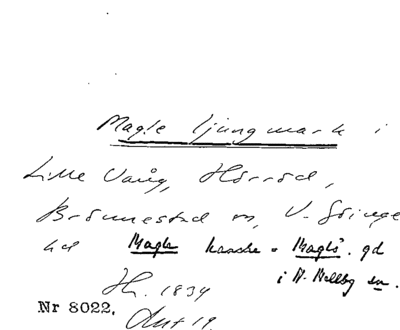 Magle ljungmark i
Lille Vång, Hörröd,
Brönnestad sn, V. Göinge
hd Magle kanske = Maglö gd
i N. Mellby sn.
Nr 8022.